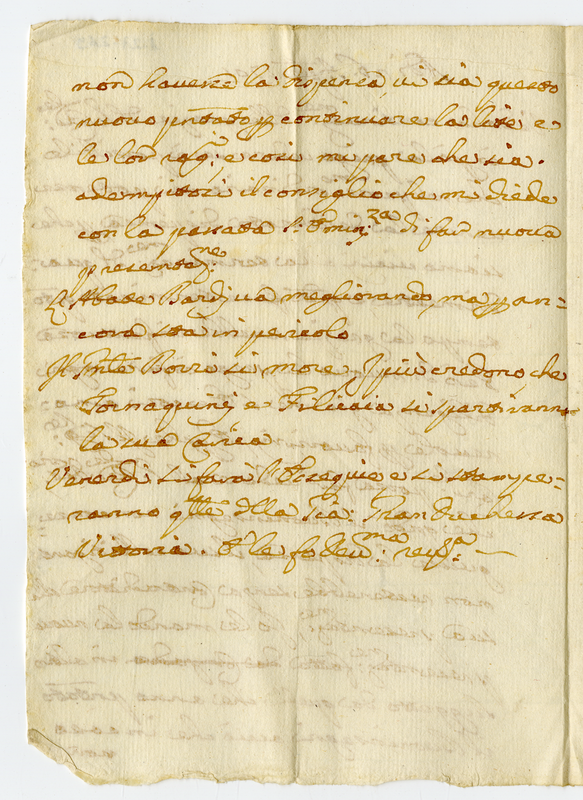 non havere la dispensa, vi sia questo
nuovo pñtato p continuare la lite e
le lor rag.; e così mi pare che sia
adempito il consiglio che mi diede
con la passata di far nuova
presentaz.ne
L'Abate Bardi va megliorando, ma p an=
cora sta in pericolo
Il Borri si more. I più credono, che
Tornaquinci e Filicaia si spartiranno
la sua Carica
Venerdì si farà l'Esequie e si stampe=
ranno q.lle della Gran Duchessa
Vittoria. E le fo dev.ma rev.za